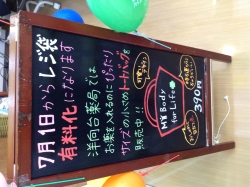 7月1日からレジ袋
有料化になります
洋向台薬局では、
お薬を入れるのにぴったりな
サイズの小さめトートバッグを
販売中!!
MY Body
for Life
390円